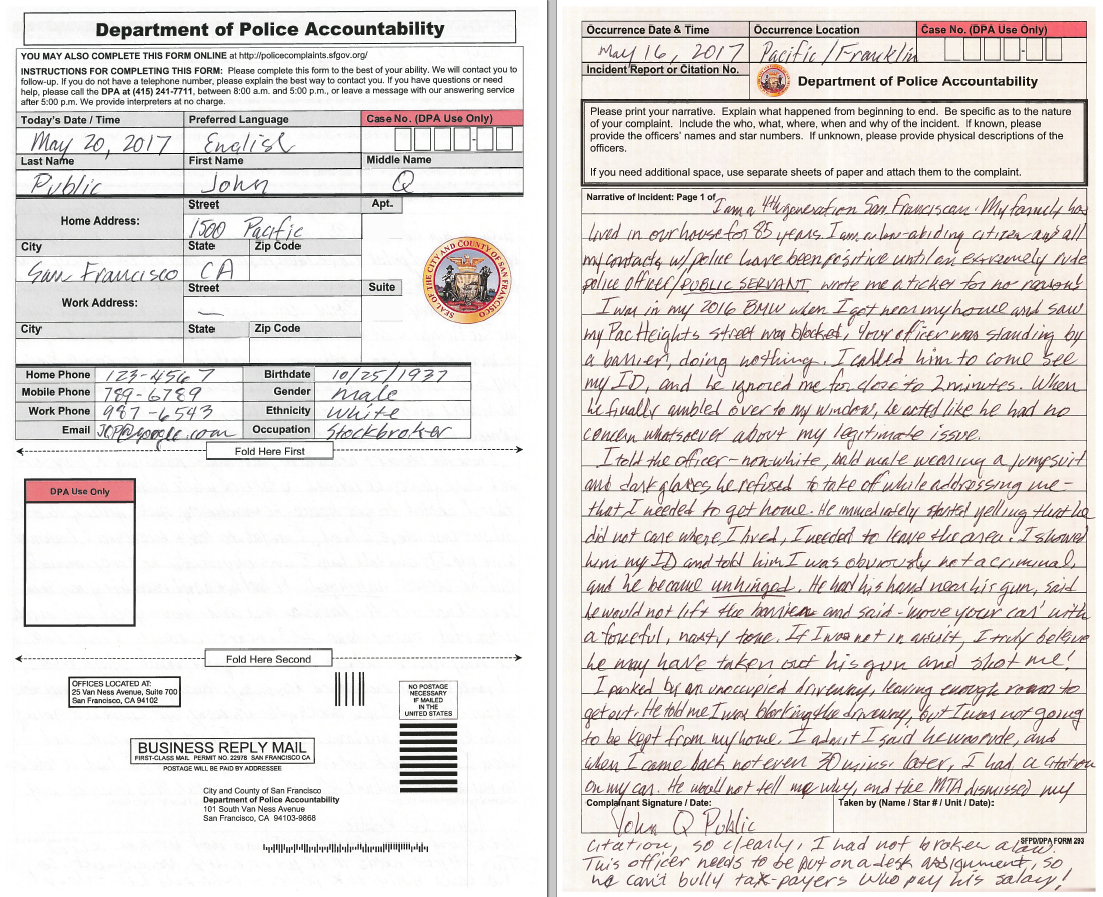 Department of Police Accountability
YOU MAY ALSO COMPLETE THIS FORM ONLINE at http://policecomplaints.sfgov.org/
INSTRUCTIONS FOR COMPLETING THIS FORM: Please complete this form to the best of your ability. We will contact you to
follow-up. If you do not have a telephone number, please explain the best way to contact you. If you have questions or need
help, please call the DPA at (415) 241-7711, between 8:00 a.m. and 5:00 p.m., or leave a message with our answering service
after 5:00 p.m. We provide interpreters at no charge.
Today's Date / Time Preferred Language Case No. (DPA Use Only)
May 20, 2017 English
Last Name First Name Middle Name
Public John Q
Street Apt.
Home Address: 1500 Pacific
City State Zip Code
San Francisco CA
Street Suite
Work Address: —
City State Zip Code
SEAL OF THE CITY AND COUNTY OF SAN FRANCISCO
Home Phone 123-4567 Birthdate 10/25/1937
Mobile Phone 789-6789 Gender male
Work Phone 987-6543 Ethnicity white
Email JQP@google.com Occupation Stockbroker
Fold Here First
DPA Use Only
Fold Here Second
OFFICES LOCATED AT:
25 Van Ness Avenue, Suite 700
San Francisco, CA 94102
NO POSTAGE
NECESSARY
IF MAILED
IN THE
UNITED STATES
BUSINESS REPLY MAIL
FIRST-CLASS MAIL PERMIT NO. 22978 SAN FRANCISCO CA
POSTAGE WILL BE PAID BY ADDRESSEE
City and County of San Francisco
Department of Police Accountability
101 South Van Ness Avenue
San Francisco, CA 94103-9868
Occurrence Date & Time Occurrence Location Case No. (DPA Use Only)
May 16, 2017 Pacific/Franklin
Incident Report or Citation No.
Department of Police Accountability
Please print your narrative. Explain what happened from beginning to end. Be specific as to the nature
of your complaint. Include the who, what, where, when and why of the incident. If known, please
provide the officers' names and star numbers. If unknown, please provide physical descriptions of the
officers.
If you need additional space, use separate sheets of paper and attach them to the complaint.
Narrative of Incident: Page 1 of I am a 4th generation San Franciscan. My family has
lived in our house for 85 years. I am a law-abiding citizen and all
my contacts w/police have been positive until an extremely rude
police officer/PUBLIC SERVANT wrote me a ticket for no reason!
I was in my 2016 BMW when I got near my house and saw
my Pac Heights street was blocked. Your officer was standing by
a barrier, doing nothing. I called him to come see
my ID, and he ignored me for close to 2 minutes. When
he finally ambled over to my window, he acted like he had no
concern whatsoever about my legitimate issue.
I told the officer - non-white, bald male wearing a jumpsuit
and dark glasses he refused to take of while addressing me -
that I needed to get home. He immediately started yelling that he
did not care where I lived, I needed to leave the area! I showed
him my ID and told him I was obviously not a criminal,
and he became unhinged. He had his hand near his gun, said
he would not lift the barrier and said - 'move your car' with
a forceful, nasty tone. If I was not in a suit, I truly believe
he may have taken out his gun and shot me!
I parked by an unoccupied driveway, leaving enough room to
get out. He told me I was blocking the driveway, but I was not going
to be kept from my home. I admit I said he was rude, and
when I came back not even 30 mins. later, I had a citation
on my car. He would not tell me why, and the MTA dismissed my
Complainant Signature / Date: Taken by (Name / Star # / Unit / Date):
John Q Public
SFPD/DPA FORM 293
citation, so clearly, I had not broken a law.
This officer needs to be put on a desk assignment, so
he can't bully tax-payers who pay his salary!